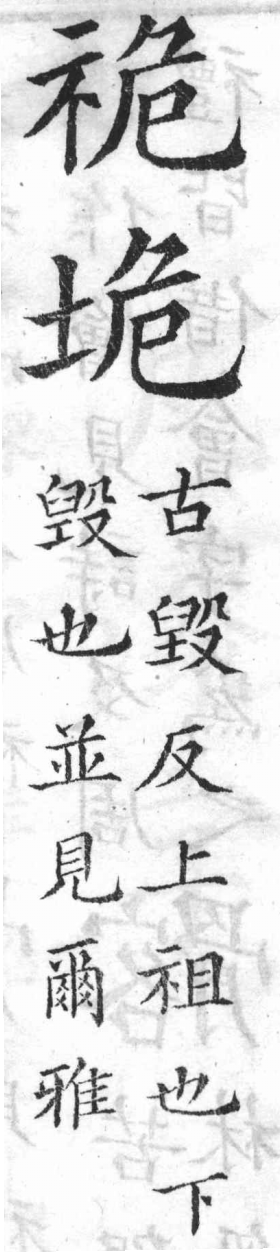 祪垝
古毀反上祖也下
毀也並見爾雅